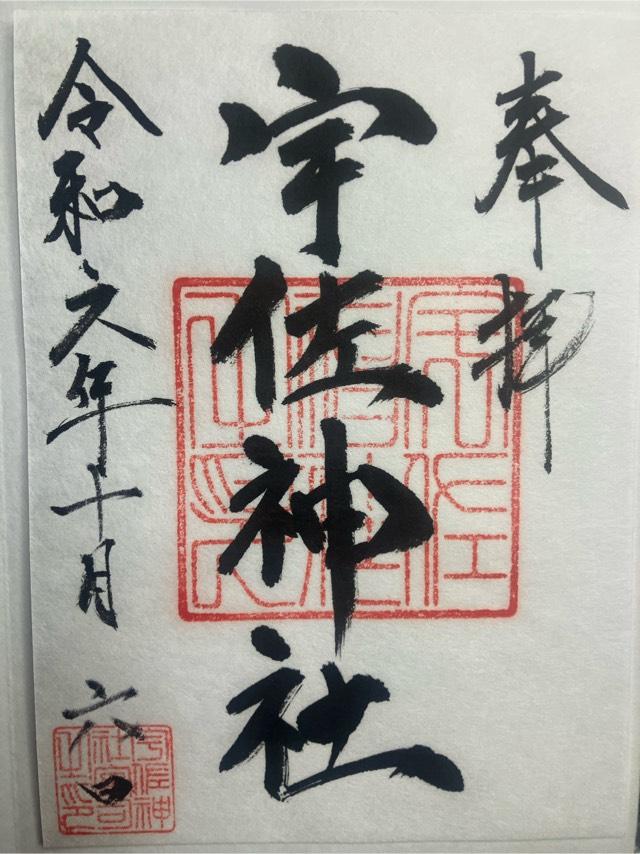 奉拝
宇佐神社
令和六年十月六日
宇佐神
社宮司
之印